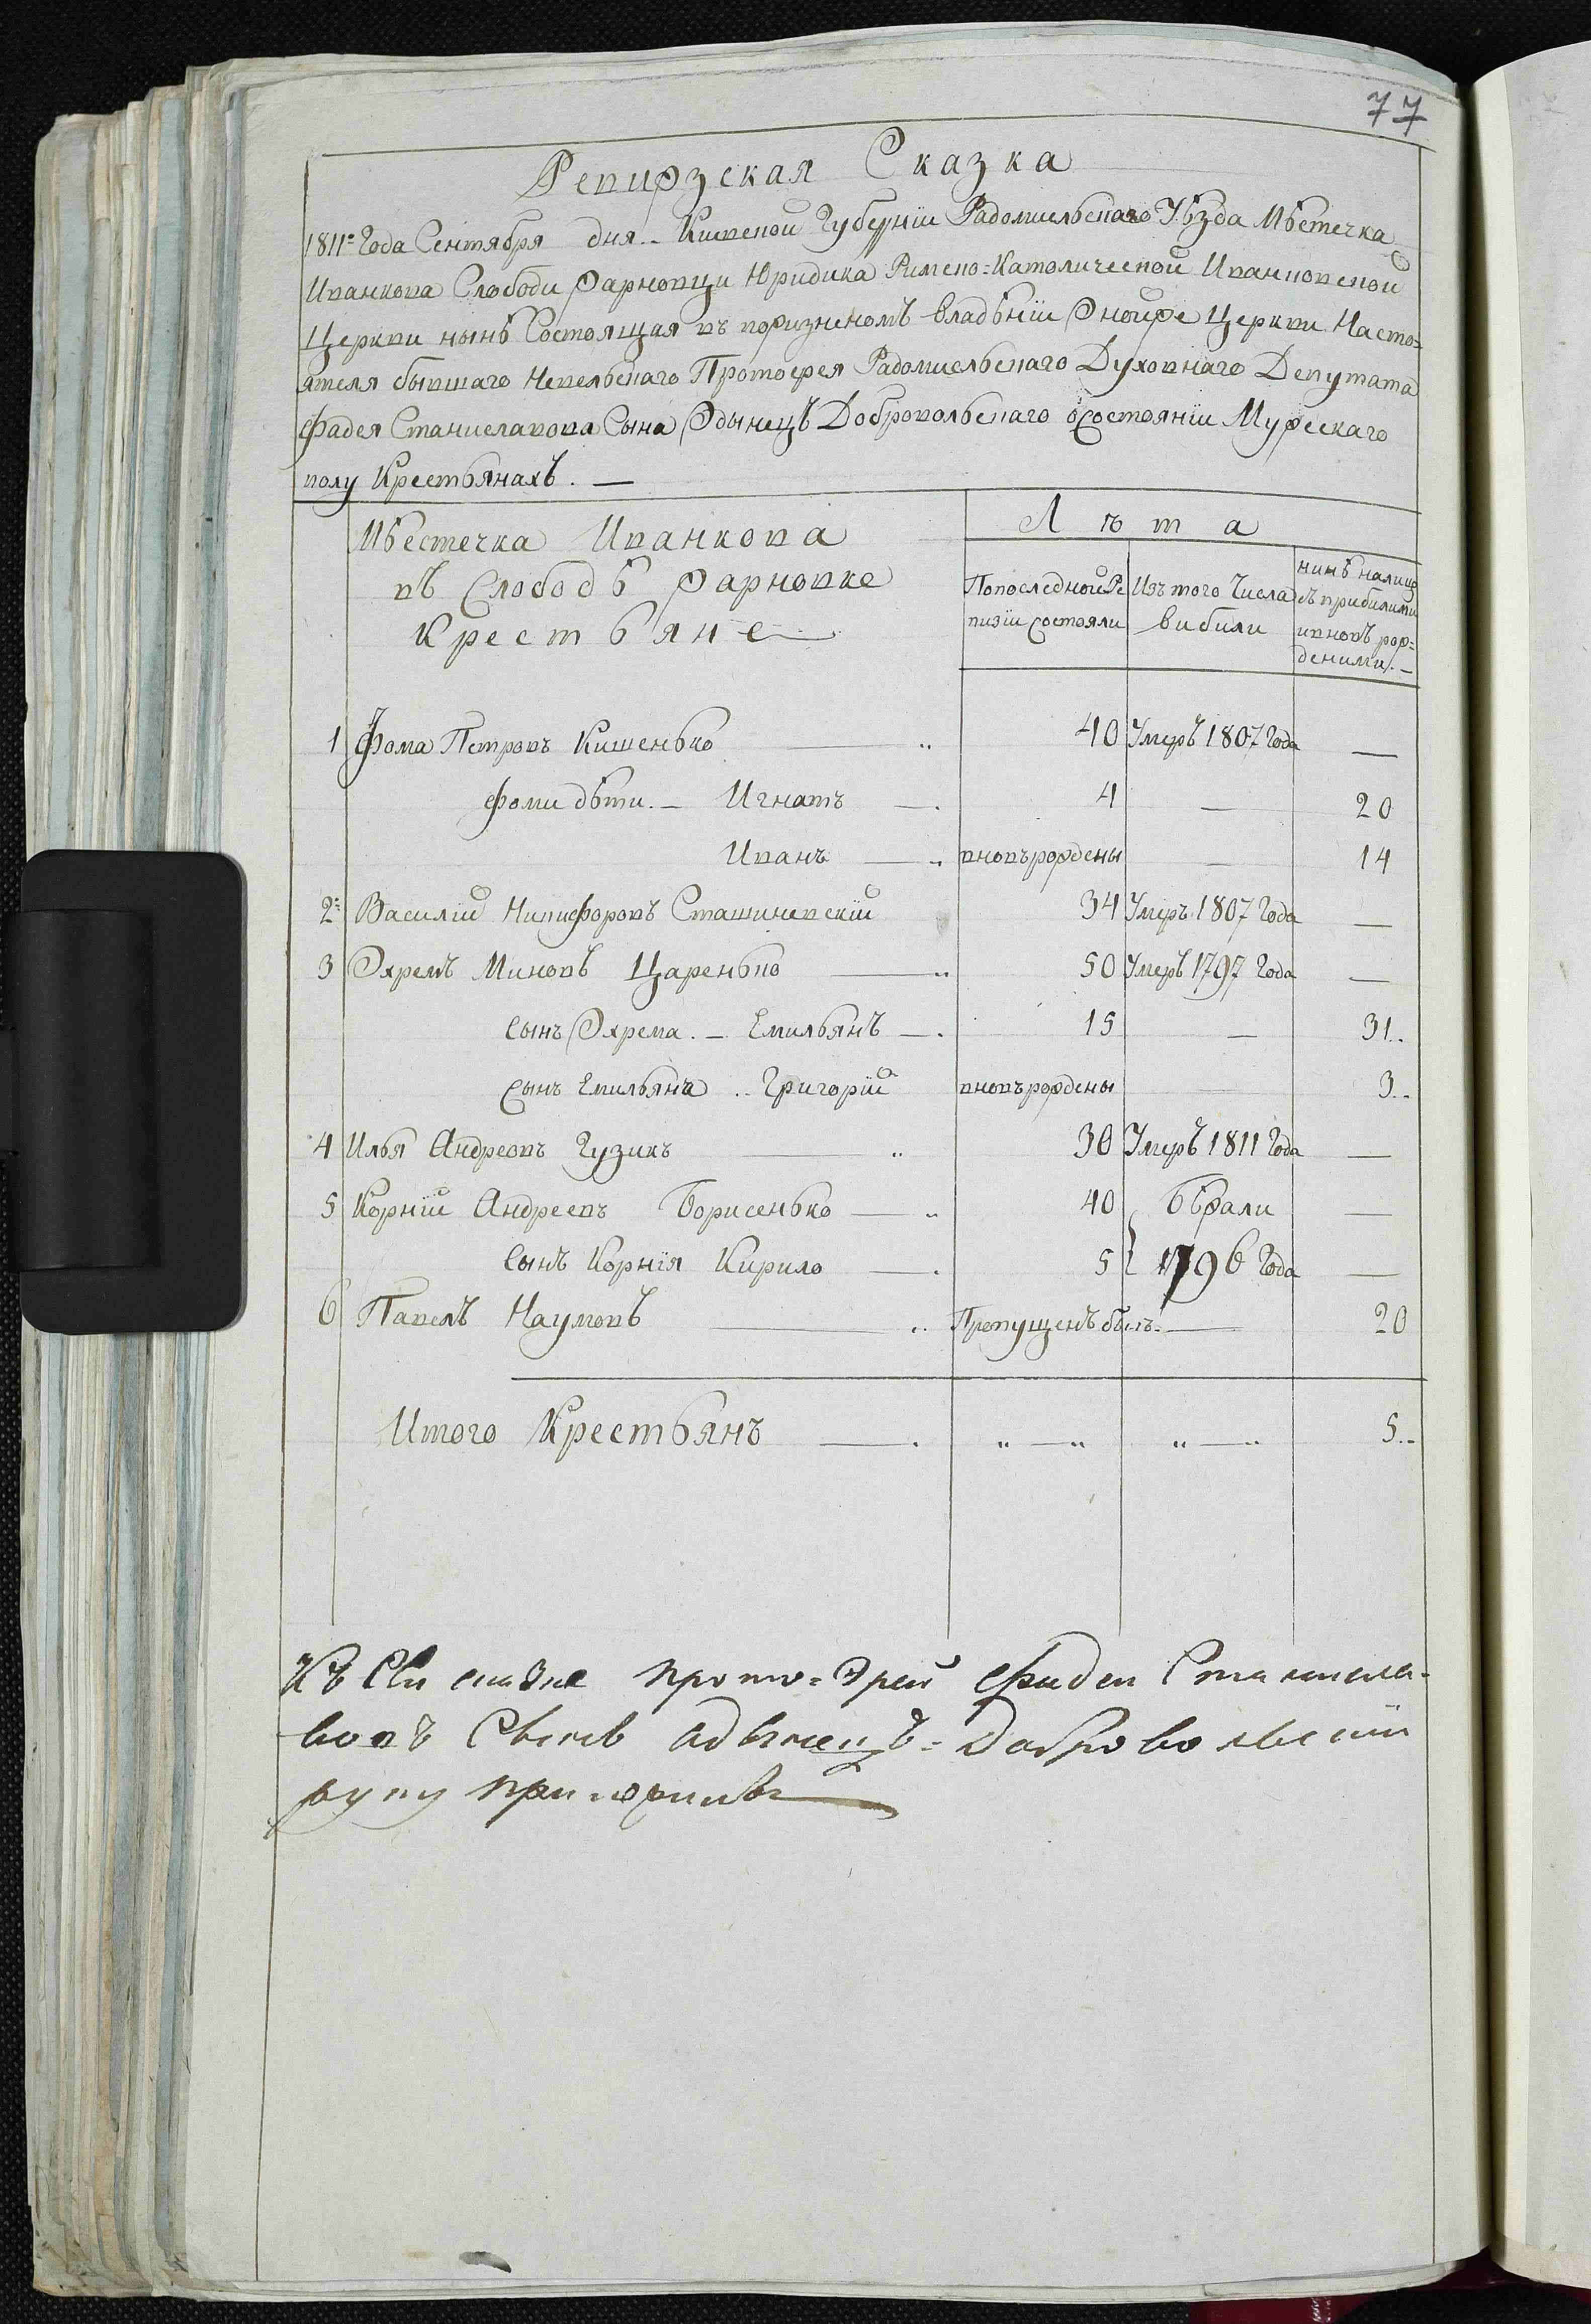 77
Ревижская Сказка
1811го Года Сентября дня.. Киевской Губернїи Радомисльскаго Уѣзда Мѣстечка
Иванкова Слободи Жарновци Юридика Римско=Католической Иванковской
Церкви нынѣ Состоящая въ пожизненомъ владѣнїи Оной же Церкви Насто=
ятеля бывшаго Чевельскаго Протоерея Радомисльскаго Духовнаго Депутата
Фадея Станиславова Сына Одынецъ Добровольскаго о Состоянїи Мужескаго
полу Крестьянахъ. —
Мѣстечка Иванкова
въ Слободѣ Жарновке
Крестьяне
Лѣта
По последной Ре
визїи Состояли
Изъ того Числа
вибили
нинѣ налицо
съ прибилими
и вновь рож=
деними. —
1 Фома Петровъ Кишенько — „ 40 Умеръ 1807 Года —
Фоми дѣти. — Игнатъ —. 4 — 20
Иванъ — .. вновъ рождены — 14
2: Василїй Никифоровъ Сташиневскїй 34 Умеръ 1807 Года —
3 Охремъ Миновъ Царенько — „ 50 Умеръ 1797 Года —
Сынъ Охрема. — Емильянъ —. 15 — 31..
Сынъ Емильяна .. Григорїй вновъ рождены — 3..
4 Илья Андреевъ Гузикъ — „ 30 Умеръ 1811 Года —
5 Корнїй Андреевъ Борисенько — „ 40 бѣжали —
Сынъ Корнїя Кирило —. 5 1796 Года —
6 Павелъ Наумовъ — .. Пропущенъ былъ. — 20
Итого Крестьянъ —. „ — „ „ — „ 5..
Къ Сей сказке прото=Ерей Фадей Станисла-
вовъ Сынъ Адынецъ=Добровольскїй
руку приложилъ